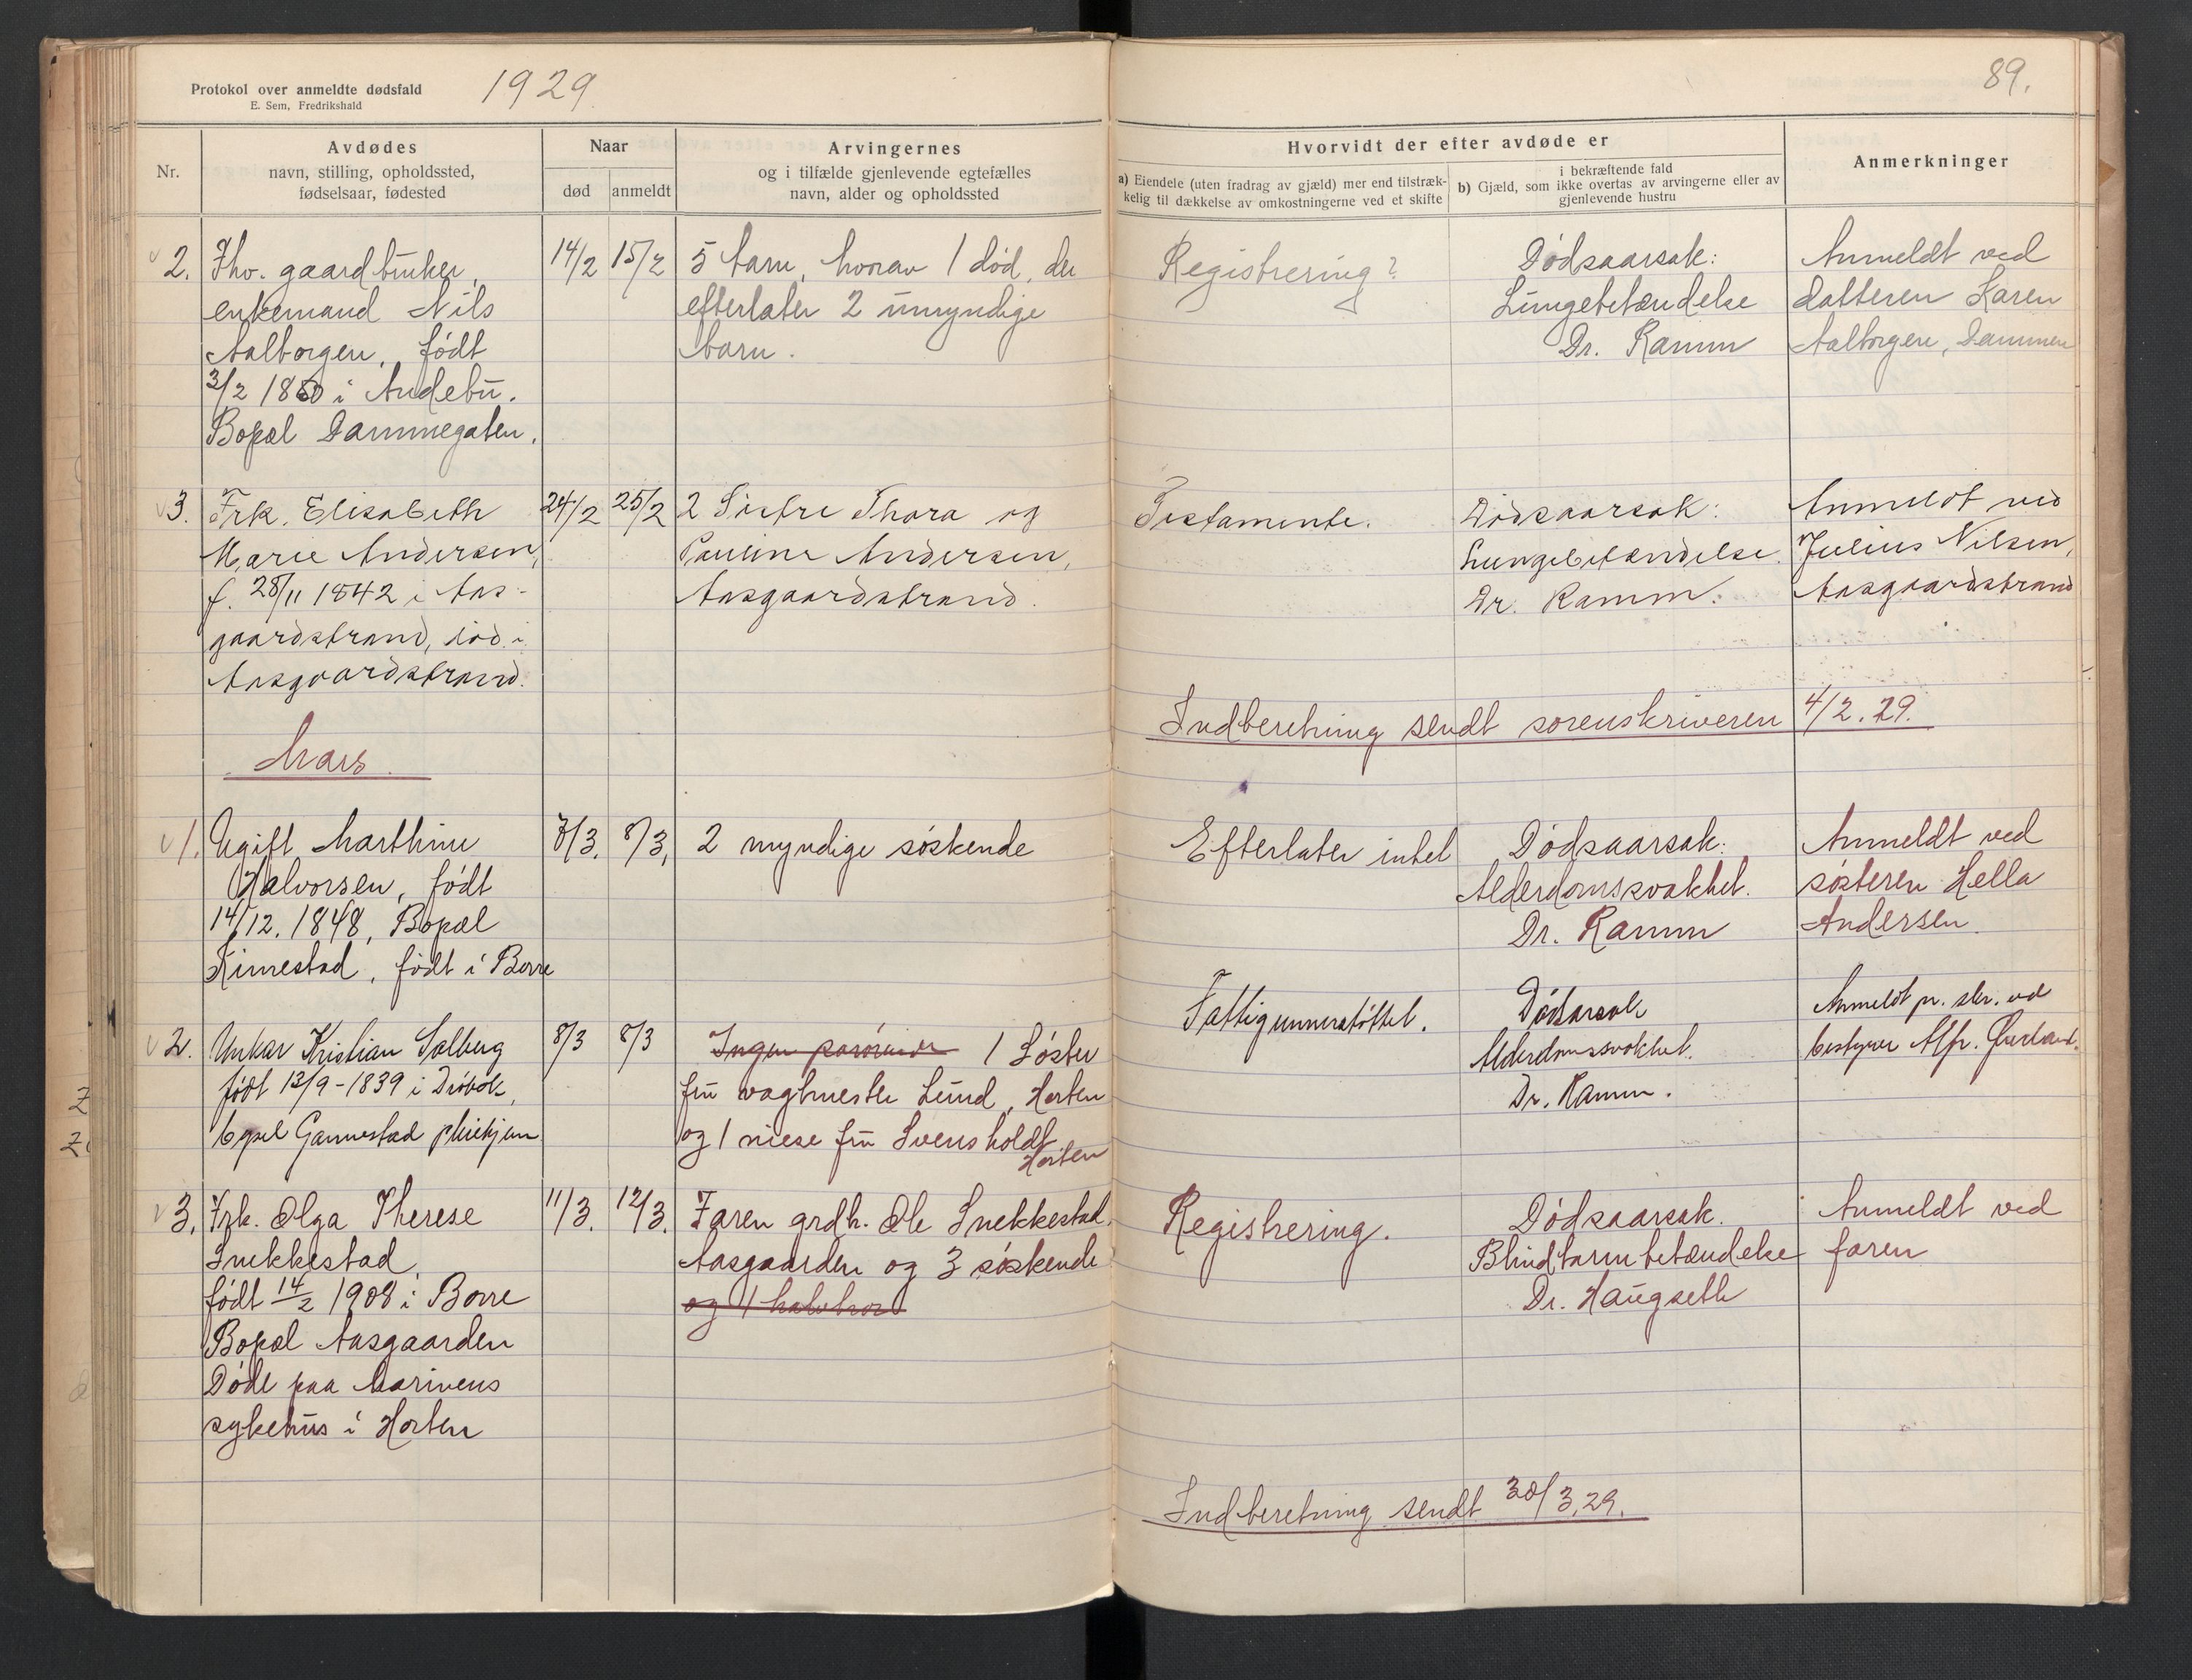 Protokol over anmeldte dødsfald
E. Sem, Fredrikshald
1929.
89.
Nr.
Avdødes
navn, stilling, opholdssted,
fødselsaar, fødested
Naar
død
anmeldt
Arvingernes
og i tilfælde gjenlevende egtefælles
navn, alder og opholdssted
Hvorvidt der efter avdøde er
a) Eiendele (uten fradrag av gjæld) mer end tilstræk-
kelig til dækkelse av omkostningerne ved et skifte
i bekræftende fald
b) Gjæld, som ikke overtas av arvingerne eller av
gjenlevende hustru
Anmerkninger
2.
Fhv. gaardbruker,
enkemand Nils
Aalborgen, født
3/2 1850 i Andebu.
Bopæl Dammegaten.
14/2
15/2
5 barn, hvorav 1 død, der
efterlater 2 umyndige
barn.
Registrering?
Dødsaarsak:
Lungebetændelse
Dr. Ramm
Anmeldt ved
datteren Karen
Aalborgen, Dammen
3.
Frk. Elisabeth
Marie Andersen,
f. 28/11 1842 i Aas-
gaardstrand, død i
Aasgaardstrand.
24/2
25/2
2 Søstre Thora og
Pauline Andersen,
Aasgaardstrand.
Testamente.
Dødsaarsak:
Lungebetændelse.
Dr. Ramm.
Anmeldt ved
Julius Nilsen,
Aasgaardstrand
Indberetning sendt sorenskriveren 4/2.29.
Mars.
1.
Ugift Marthine
Halvorsen, født
14/12. 1848, Bopæl
Kirrestad, født i Borre
7/3.
8/3.
2 myndige søskende
Efterlater intet
Dødsaarsak:
Alderdomssvakhet.
Dr. Ramm
Anmeldt ved
søsteren Hella
Andersen.
2.
Unkar Kristian Solberg
født 13/9-1839 i Drøbak,
bopæl Gannestad pleiehjem
8/3
8/3
Ingen paarørende 1 Søster
fru vagtmester Lund, Horten
og 1 niese fru Svensholdt
Horten
Fattigunnerstøttet.
Dødsarsak
Alderdomssvakhet.
Dr. Ramm.
Anmeldt pr. skr. ved
bestyrer Alfr.
3.
Frk. Olga Therese
Snekkestad
født 14/2 1908 i Borre
Bopæl Aasgaarden
Døde paa Marinens
sykehus i Horten
11/3.
12/3.
Faren grdb. Ole Snekkestad,
Aasgaarden og 3 søskende
og 1 halvbror
Registrering.
Dødsaarsak.
Blindtarmbetændelse
Dr. Haugseth
Anmeldt ved
faren
Indberetning sendt 30/3.29.